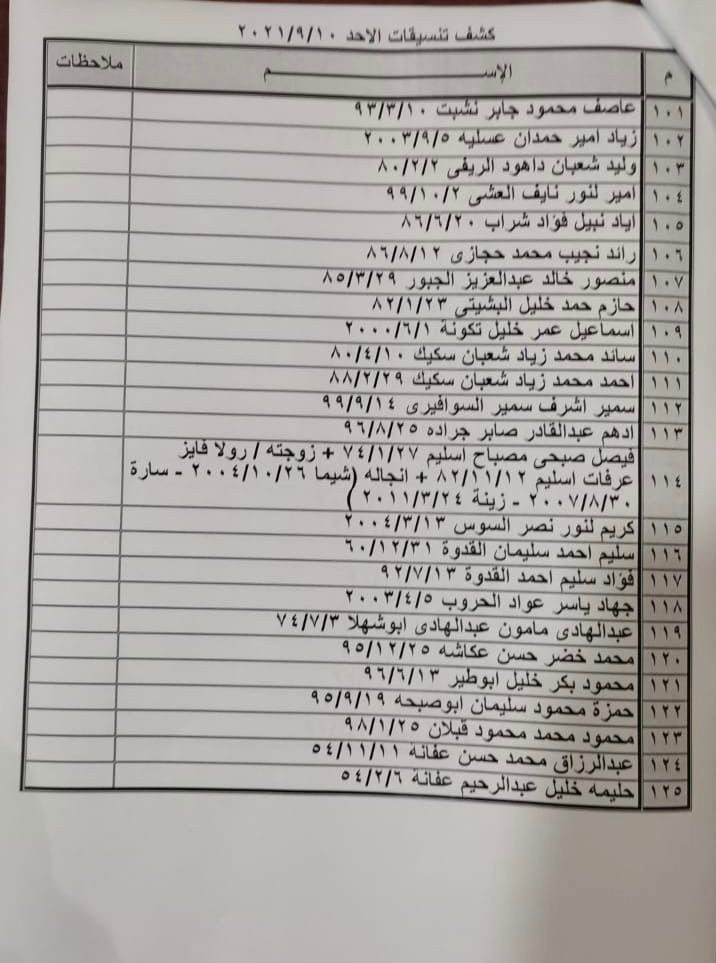 كشف تنسيقات الاحد ٢٠٢١/٩/١٠
م الإســـــم ملاحظات
١٠١ عاصف محمود جابر نشبت ٩٣/٣/١٠
١٠٢ زياد امير حمدان عسليه ٢٠٠٣/٩/٥
١٠٣ وليد شعبان داهود الريفى ٨٠/٢/٢
١٠٤ امير لنور نايف العشى ٩٩/١٠/٢
١٠٥ اياد نبيل فؤاد شراب ٨٦/٦/٢٠
١٠٦ رائد نجيب محمد حجازى ٨٦/٨/١٢
١٠٧ منصور خالد عبدالعزيز الجبور ٨٥/٣/٢٩
١٠٨ حازم حمد خليل البشيتى ٨٢/١/٢٣
١٠٩ اسماعيل عمر خليل تكونة ٢٠٠٠/٦/١
١١٠ سائد محمد زياد شعبان سكيك ٨٠/٤/١٠
١١١ احمد محمد زياد شعبان سكيك ٨٨/٢/٢٩
١١٢ سمير اشرف سمير السوافيرى ٩٩/٩/١٤
١١٣ ادهم عبدالقادر صابر جراده ٩٦/٨/٢٥
١١٤ فيصل صبحى مصباح اسليم ٧٤/١/٢٧ + زوجته / رولا فايز
عرفات اسليم ٨٢/١١/١٢ + انجاله (شيما ٢٠٠٤/١٠/٢٦ - سارة
٢٠٠٧/٨/٣٠ - زينة ٢٠١١/٣/٢٤ )
١١٥ كريم لنور نصر السوس ٢٠٠٤/٣/١٣
١١٦ سليم احمد سليمان القدوة ٦٠/١٢/٣١
١١٧ فؤاد سليم احمد القدوة ٩٢/٧/١٣
١١٨ جهاد ياسر عواد الحروب ٢٠٠٣/٤/٥
١١٩ عبدالهادى مامون عبدالهادى ابوشهلا ٧٤/٧/٣
١٢٠ محمد خضر حسن عكاشه ٩٥/١٢/٢٥
١٢١ محمود بكر خليل ابوطير ٩٦/٦/١٣
١٢٢ حمزة محمود سليمان ابوصبحه ٩٥/٩/١٩
١٢٣ محمود محمد محمود قبلان ٩٨/١/٢٥
١٢٤ عبدالرزاق محمد حسن عفانة ٥٤/١١/١١
١٢٥ حليمه خليل عبدالرحيم عفانة ٥٤/٢/٦